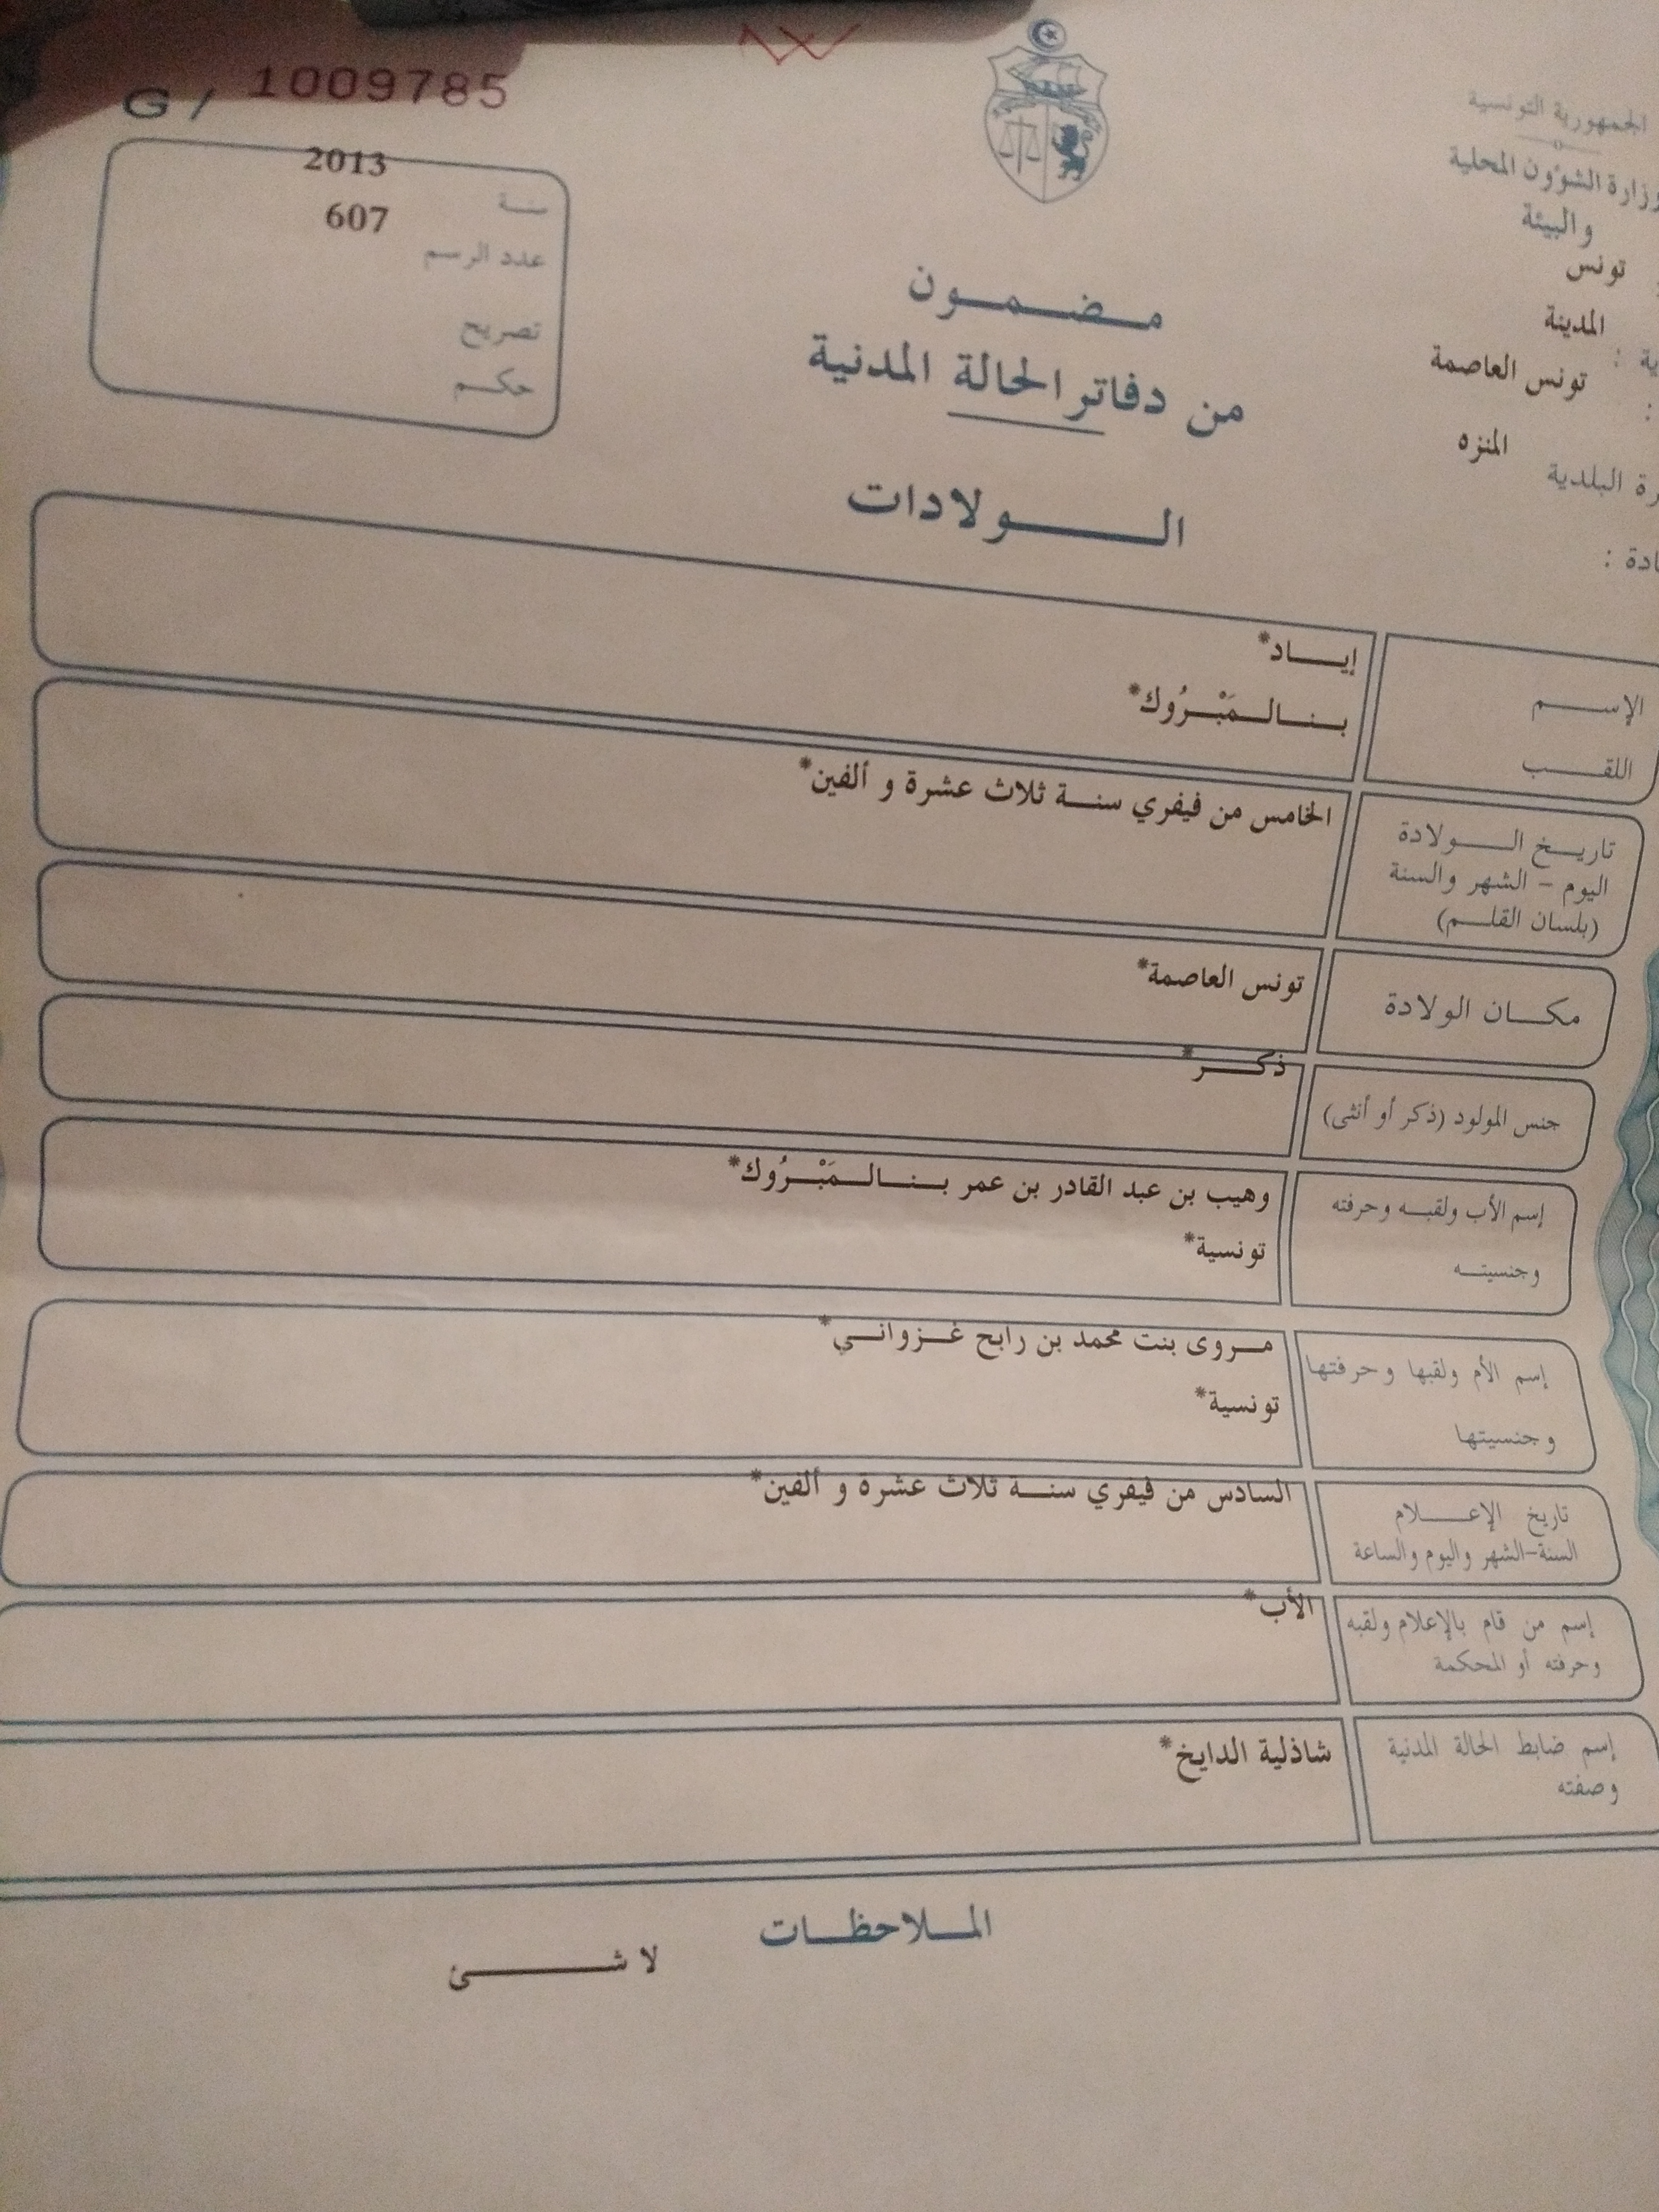 G / 1009785
2013
سنة
607
عدد الرسم
تصريح
حكم
الجمهورية التونسية
وزارة الشؤون المحلية
والبيئة
تونس
المدينة
تونس العاصمة
المنزه
البلدية
مضمون
من دفاتر الحالة المدنية
الولادات
الإسم
إياد*
اللقب
بنالمَبْرُوك*
تاريخ الولادة
اليوم - الشهر والسنة
(بلسان القلم)
الخامس من فيفري سنة ثلاث عشرة و ألفين*
مكان الولادة
تونس العاصمة*
جنس المولود (ذكر أو أنثى)
ذكر*
إسم الأب ولقبه وحرفته
وجنسيته
وهيب بن عبد القادر بن عمر بنالمَبْرُوك*
تونسية*
إسم الأم ولقبها وحرفتها
وجنسيتها
مروى بنت محمد بن رابح غزواني*
تونسية*
تاريخ الإعلام
السنة-الشهر واليوم والساعة
السادس من فيفري سنة ثلاث عشرة و ألفين*
إسم من قام بالإعلام ولقبه
وحرفته أو المحكمة
الأب*
إسم ضابط الحالة المدنية
وصفته
شاذلية الدايخ*
الملاحظات
لا شئ